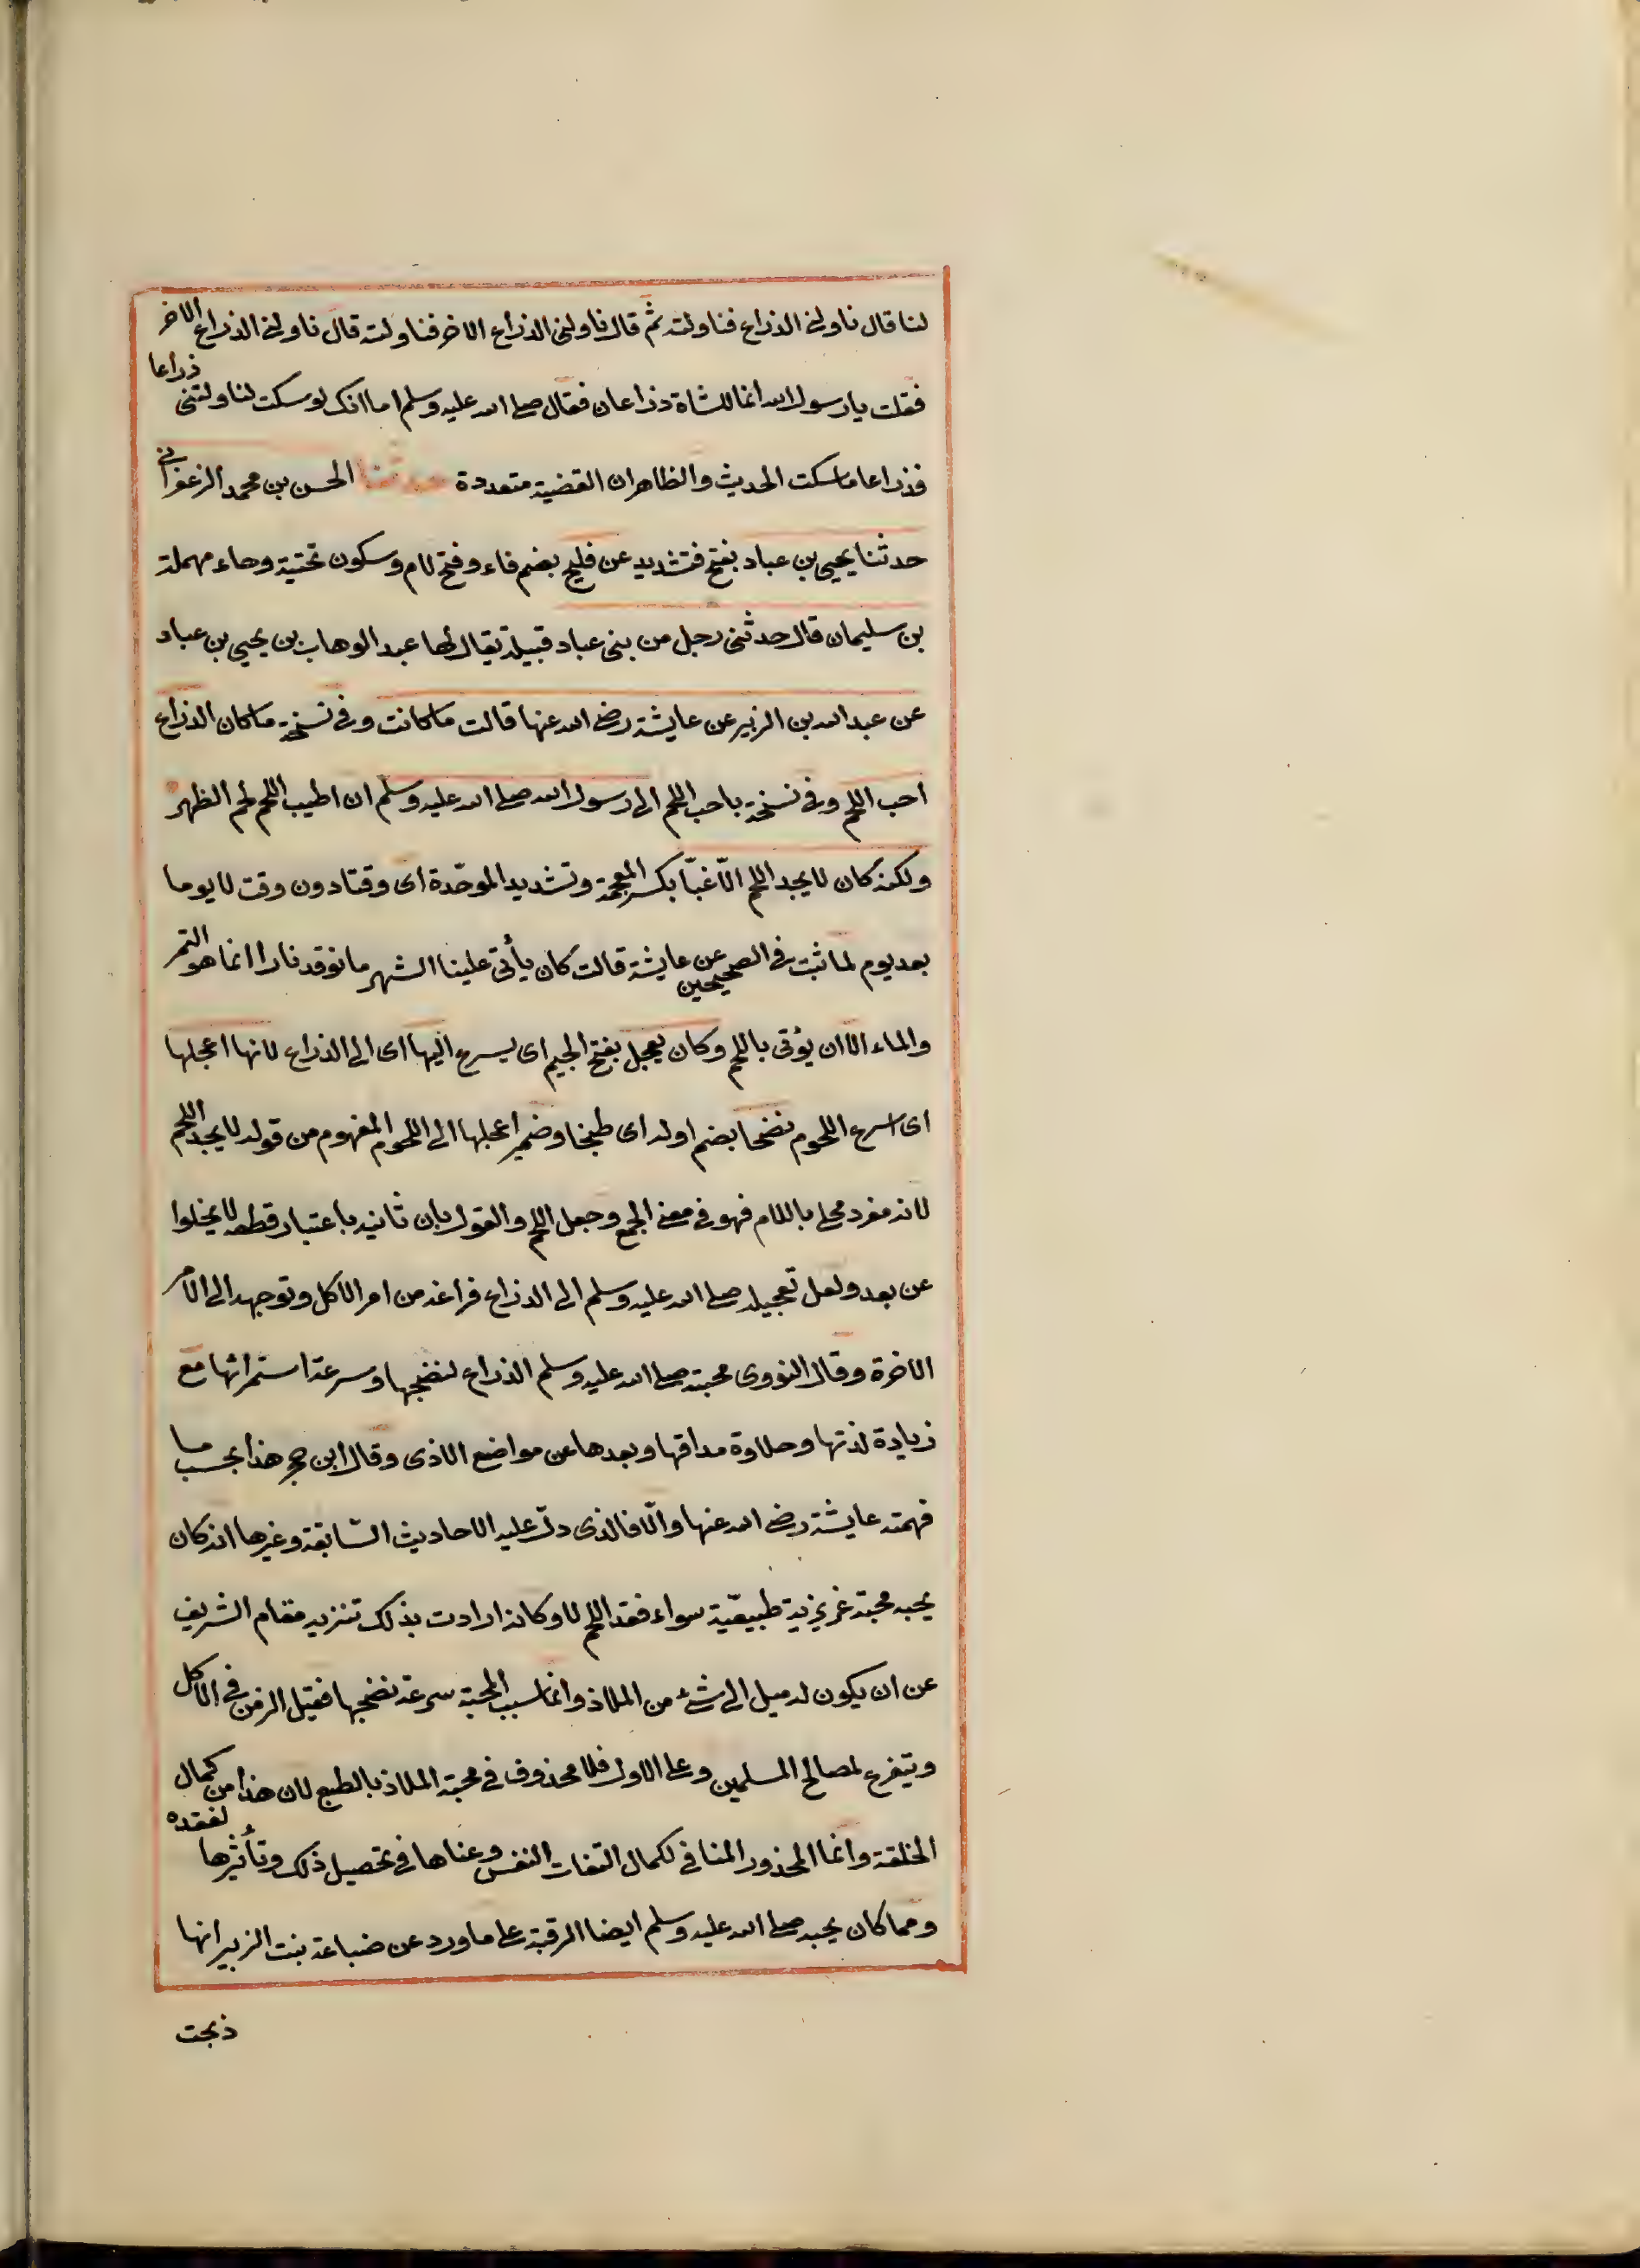 لنا قال ناولنى الذراع فناولته ثم قال ناولنى الذراع الاخر فناولته قال ناولنى الذراع الاخر
فقلت يا رسول الله انما للشاة ذراعان فقال صلى الله عليه وسلم اما انك لو سكت لناولتنى ذراعا
فذراعا ما سكت الحديث والظاهر ان القضية متعددة حدثنا الحسن بن محمد الزعفرانى
حدثنا يحيى بن عباد بفتح فتشديد عن فليح بضم فاء وفتح لام وسكون تحتية وحاء مهملة
بن سليمان قال حدثنى رجل من بنى عباد قبيلة يقال لها عبد الوهاب بن يحيى بن عباد
عن عبد الله بن الزبير عن عايشة رضى الله عنها قالت ما كانت وفى نسخة ما كان الذراع
احب اللحم وفى نسخة باحب اللحم الى رسول الله صلى الله عليه وسلم ان اطيب اللحم لحم الظهر
ولكنه كان لا يجد اللحم الّا غبّا بكسر المعجمة وتشديد الموحّدة اى وقتا دون وقت لا يوما
بعد يوم لما ثبت فى الصحيحين عن عايشة قالت كان يأتى علينا الشهر ما نوقد نارا انما هو التمر
والماء الا ان يؤتى باللحم وكان يعجل بفتح الجيم اى يسرع اليها اى الى الذراع لانها اعجلها
اى اسرع اللحوم نضجا بضم اوله اى طبخا وضمير اعجلها الى اللحوم المفهوم من قوله لا يجد اللحم
لانه مفرد محلى باللام فهو فى معنى الجمع وجعل اللحم والقول بان تانيثه باعتبار قطعه لا يخلوا
عن بعد ولعل تعجيله صلى الله عليه وسلم الى الذراع فراغه من امر الاكل وتوجهه الى الأمر
الاخرة وقال النووى محبته صلى الله عليه وسلم الذراع لنضجها وسرعة استمرائها مع
زيادة لذتها وحلاوة مذاقها وبعدها عن مواضع الاذى وقال ابن حجر هذا بحسب ما
فهمته عايشة رضى الله عنها والّا فالذى دلّ عليه الاحاديث السّابقة وغيرها انه كان
يحبه محبة غريزية طبيعيّة سواء فقد اللحم لا وكانه ارادت بذلك تنزيه مقام الشريف
عن ان يكون له ميل الى شئ من الملاذ وانما سبب المحبة سرعة نضجها فقيل الزمن فى الاكل
ويتفرع لمصالح المسلمين وعلى الاول فلا محذوف فى محبة الملاذ بالطبع لان هذا من كمال
الخلقة وانما المحذور المنافى لكمال التفات النفس وعناها فى تحصيل ذلك وتأثيرها لفقده
ومما كان يحبه صلى الله عليه وسلم ايضا الرقبة على ما ورد عن ضباعة بنت الزبير انها
ذبحت